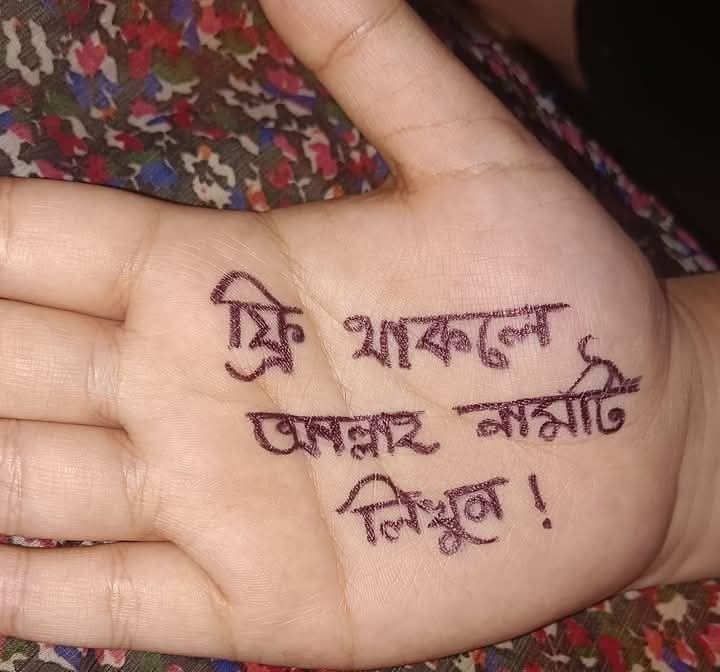 ফ্রি থাকলে
আল্লাহ নামটি
লিখুন!